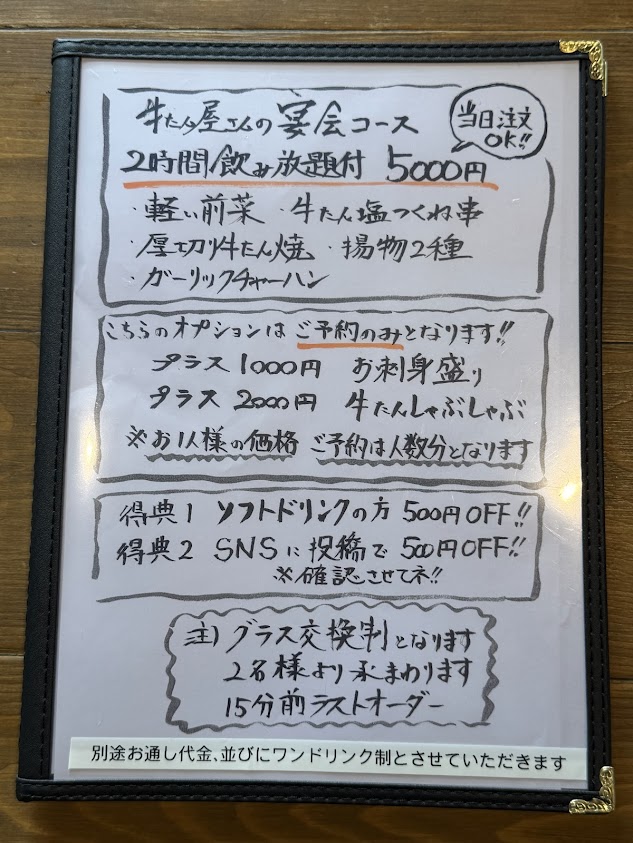 牛たん屋さんの宴会コース
当日注文
OK!!
2時間飲み放題付 5000円
・軽い前菜 ・牛たん塩つくね串
・厚切り牛たん焼 ・揚物2種
・ガーリックチャーハン
こちらのオプションはご予約のみとなります!!
プラス1000円 お刺身盛り
プラス2000円 牛たんしゃぶしゃぶ
※お1人様の価格 ご予約は人数分となります
得典1 ソフトドリンクの方 500円OFF!!
得典2 SNSに投稿で500円OFF!!
※確認させてネ!!
注) グラス交換制となります
2名様より承まわります
15分前ラストオーダー
別途お通し代金、並びにワンドリンク制とさせていただきます